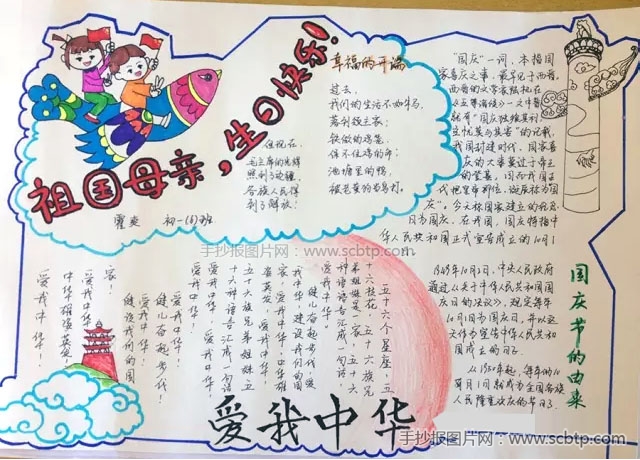 祖国母亲,生日快乐!
幸福的开端
过去,
我们的生活不如牛马,
池塘里的鸭,
但现在,
毛主席的光辉
照到了边疆,
各族人民得
到了解放!
霍爽 初一(6)班
“国庆”一词,本指国
家喜庆之事,最早见于西晋。
西晋的文学家陆机在
《五等诸侯》一文中曾
就有“国庆独飨其利
主忧莫与其害”的记载,
我国封建时代,国家喜
庆的大事莫过于帝王
的登基,
国庆”,今天称国家建立的纪念
日为国庆,在我国,国庆特指中
华人民共和国正式宣告成立的10月1
国庆节的由来
1949年10月2日,中央人民政府
通过《关于中华人民共和国国
庆日的决议》,规定每年
10月1日为国庆日,并以这
一天作为宣告中华人民共和
国成立的日子
从1950年起,每年的10
月1日就成为全国各族
人民隆重欢庆的节日了.
五十六个星座,五
十六枝花,五十六族兄
弟姐妹是一家,五十六
种语言汇成一句话,
爱我中华!
健儿奋起步伐,爱
我中华,建设我们的国
家,爱我中华,中华雄
姿英发,爱我中华!五
十六族兄弟姐妹五
十六种语言汇成一句话
爱我中华,爱我中华
健儿奋起步伐!
爱我中华!
建设我们的国
家!
爱我中华!
中华雄姿英发!
爱我中华!
爱我中华
手抄报图片网:www.scbtp.com
手抄报图片网:www.scbtp.com